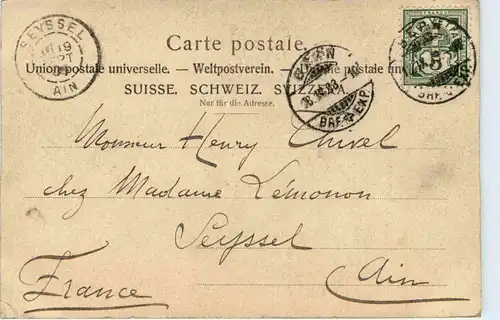 SEYSSEL
19
AIN
Carte postale.
Union postale universelle. — Weltpostverein. — postale universelle
SUISSE. SCHWEIZ. SVIZZERA.
Nur für die Adresse.
BRF. EXP.
5
Monsieur Henry
chez Madame Lémonon
Seyssel
Ain
France